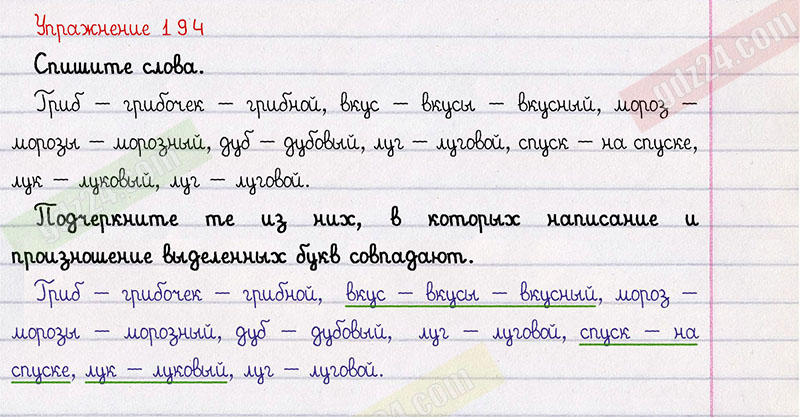 Упражнение 194
Спишите слова.
Гриб – грибочек – грибной, вкус – вкусы – вкусный, мороз –
морозы – морозный, дуб – дубовый, луг – луговой, спуск – на спуске,
лук – луковый, луг – луговой.
Подчеркните те из них, в которых написание и
произношение выделенных букв совпадают.
Гриб – грибочек – грибной, вкус – вкусы – вкусный, мороз –
морозы – морозный, дуб – дубовый, луг – луговой, спуск – на
спуске, лук – луковый, луг – луговой.
gdz24.com
gdz24.com
gdz24.com